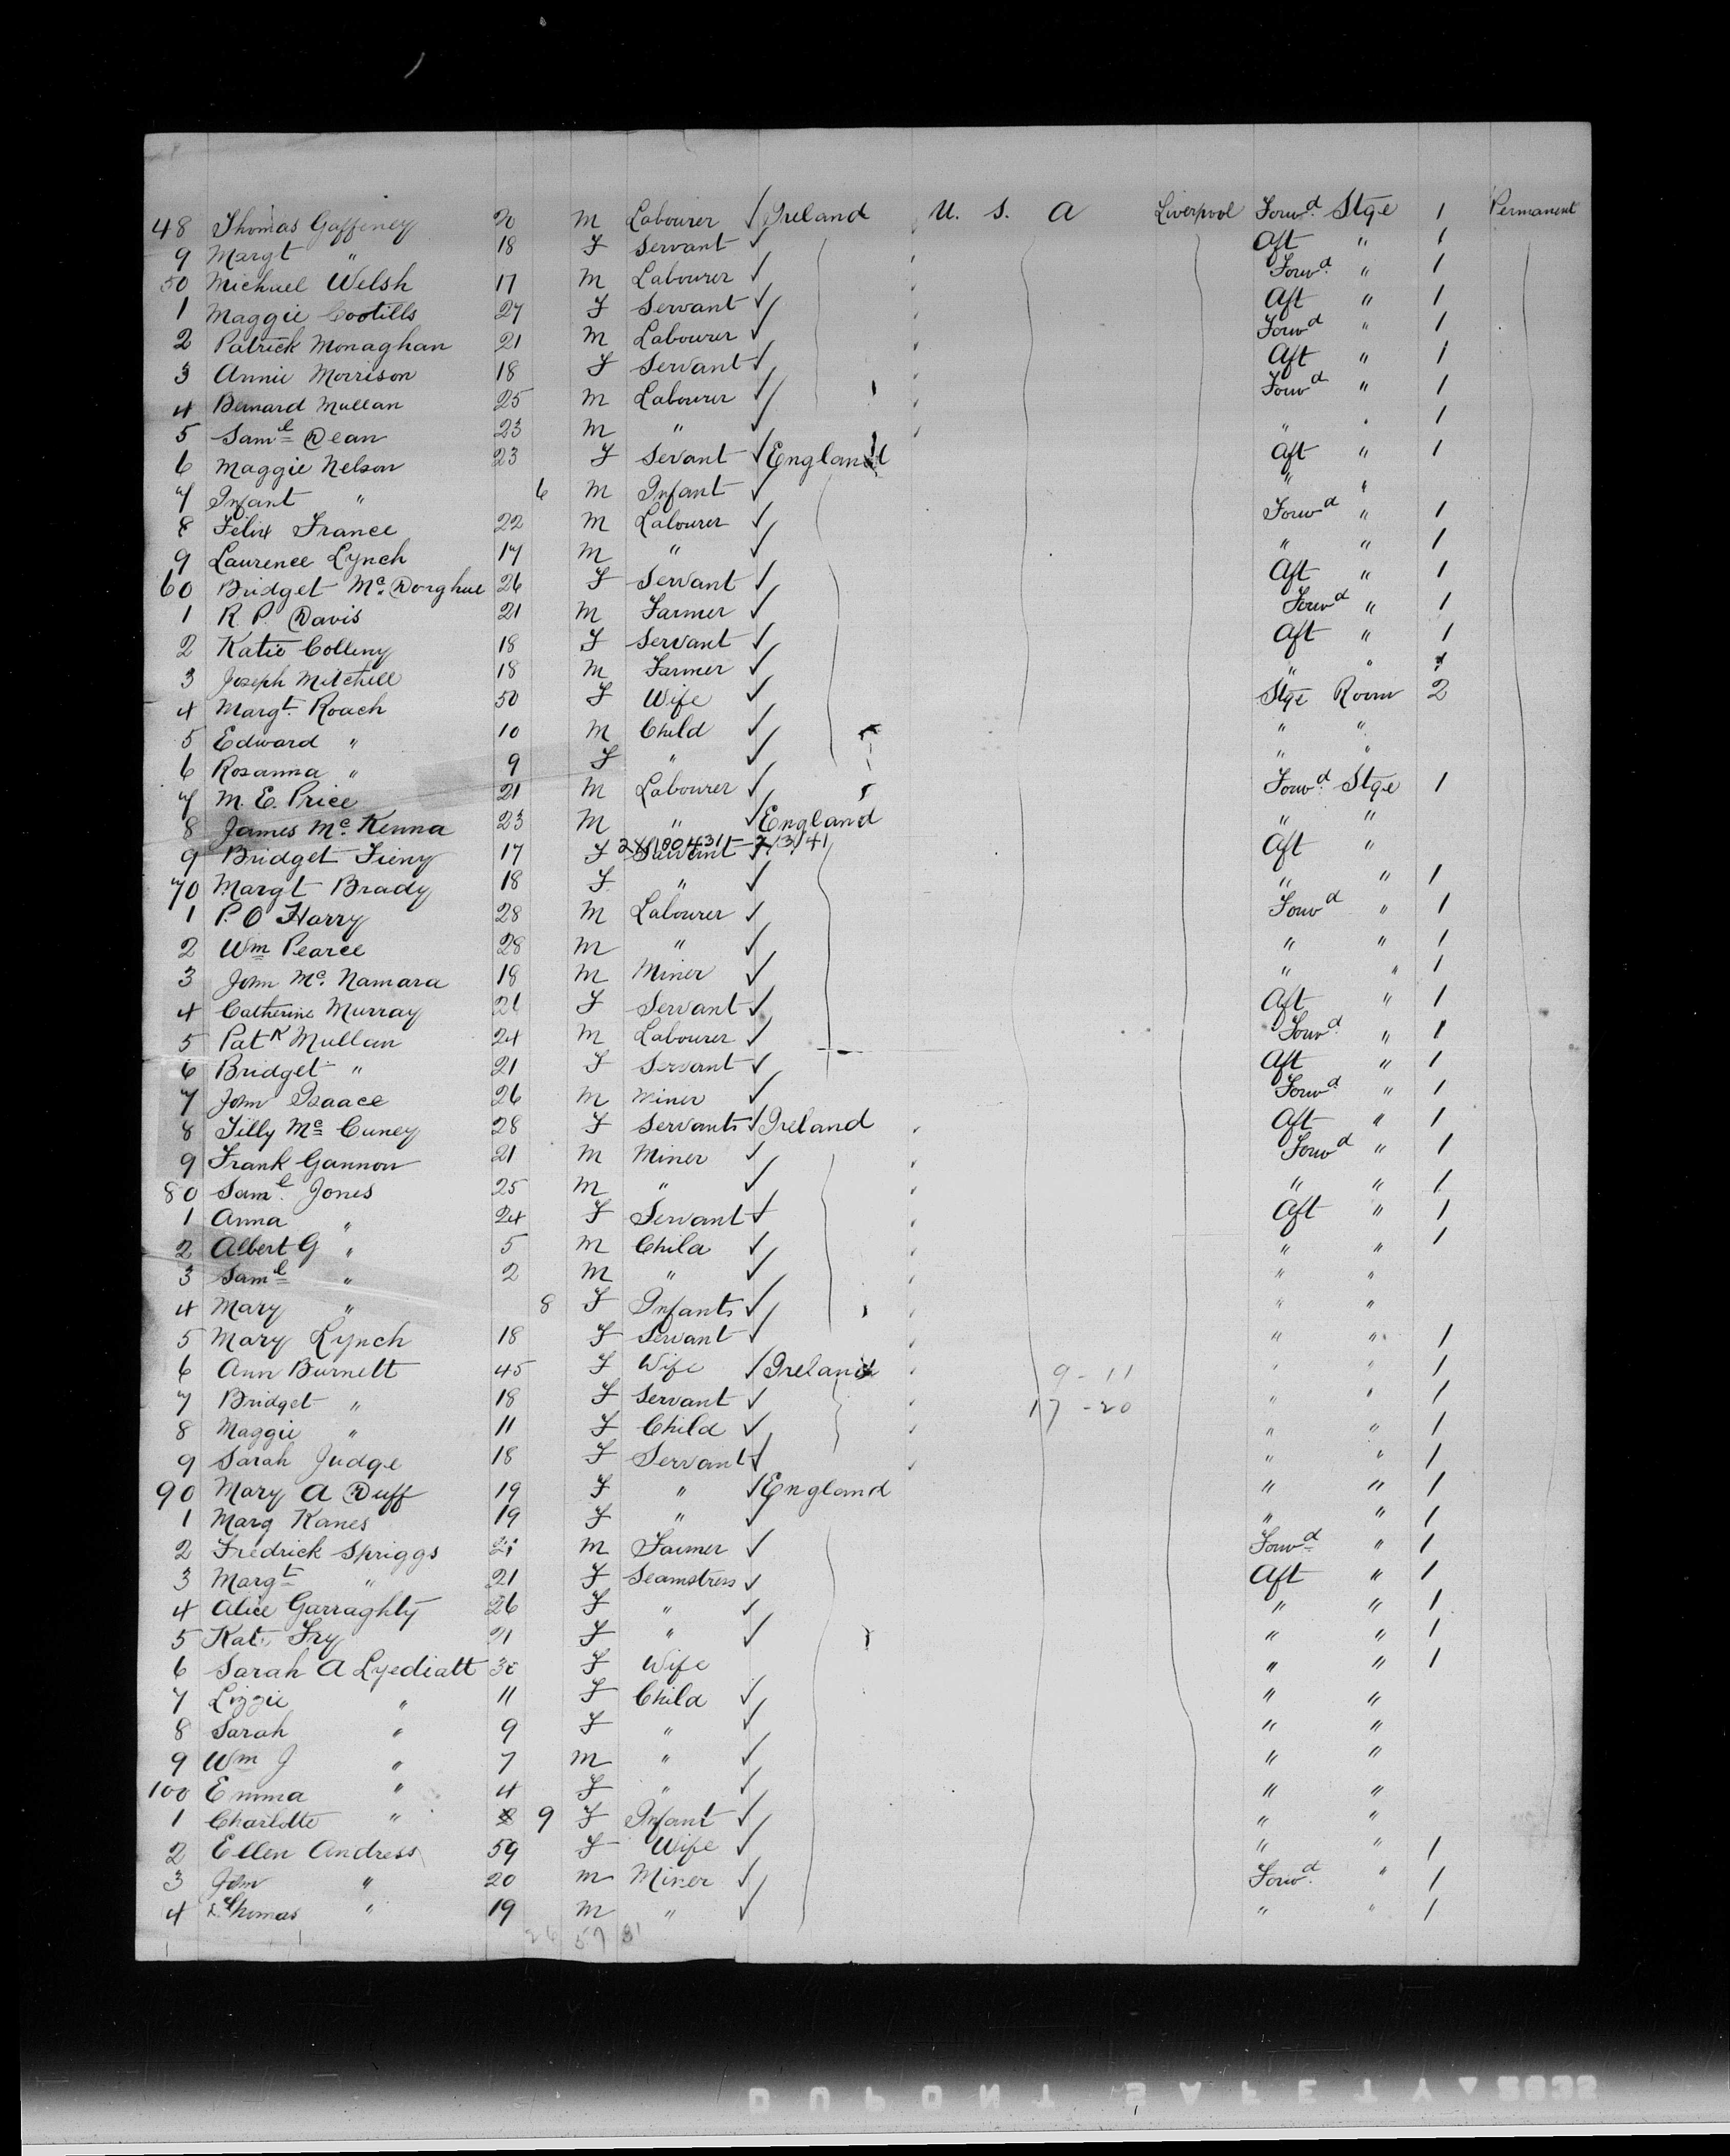 48 Thomas Gaffeney 20 M Labourer ✓ Ireland U. S. A Liverpool Forwd. Stge 1 Permanent
9 Margt " 18 F Servant ✓ Aft " 1
50 Michael Welsh 17 M Labourer ✓ Forwd. " 1
1 Maggie Cootills 27 F Servant ✓ Aft " 1
2 Patrick Monaghan 21 M Labourer ✓ Forwd " 1
3 Annie Morrison 18 F Servant ✓ Aft " 1
4 Bernard Mullan 25 M Labourer ✓ Forwd " 1
5 Saml Dean 23 M " ✓ " " 1
6 Maggie Nelson 23 F Servant ✓ England Aft " 1
7 Infant " 6 M Infant ✓ " "
8 Felix France 22 M Labourer ✓ Forwd " 1
9 Laurence Lynch 17 M " ✓ " " 1
60 Bridget Mc. Dorghue 26 F Servant ✓ Aft " 1
1 R. P. Davis 21 M Farmer ✓ Forwd " 1
2 Katie Colleny 18 F Servant ✓ Aft " 1
3 Joseph Mitchell 18 M Farmer ✓ " " 1
4 Margt. Roach 50 F Wife ✓ Stge Room 2
5 Edward " 10 M Child ✓ " "
6 Rosanna " 9 F " ✓ " "
7 M. E. Price 21 M Labourer ✓ Forwd. Stge 1
8 James Mc. Kenna 23 M " ✓ England " "
9 Bridget Fieny 17 F Servant ✓ Aft "
70 Margt Brady 18 F " ✓ " " 1
1 P. O Harry 28 M Labourer ✓ Forwd " 1
2 Wm Pearce 28 M " ✓ " " 1
3 John Mc. Namara 18 M Miner ✓ " " 1
4 Catherine Murray 21 F Servant ✓ Aft " 1
5 Patk Mullan 24 M Labourer ✓ Forwd " 1
6 Bridget " 21 F Servant ✓ Aft " 1
7 John Isaace 26 M Miner ✓ Forwd " 1
8 Tilly Mc Cuney 28 F Servants ✓ Ireland Aft " 1
9 Frank Gannon 21 M Miner ✓ Forwd " 1
80 Saml. Jones 25 M " ✓ " " 1
1 Anna " 24 F Servant ✓ Aft " 1
2 Albert G " 5 M Child ✓ " " 1
3 Saml " 2 M " ✓ " "
4 Mary " 8 F Infants ✓ " "
5 Mary Lynch 18 F Servant ✓ " " 1
6 Ann Burnett 45 F Wife ✓ Ireland 9 - 11 " " 1
7 Bridget " 18 F Servant ✓ 17 - 20 " " 1
8 Maggie " 11 F Child ✓ " " 1
9 Sarah Judge 18 F Servant ✓ " " 1
90 Mary A Duff 19 F " ✓ England " " 1
1 Marg Kanes 19 F " ✓ " " 1
2 Fredrick Spriggs M Farmer ✓ Forwd " 1
3 Margt " 21 F Seamstress ✓ Aft " 1
4 Alice Garraghty 26 F " ✓ " " 1
5 Kate Fry 21 F " ✓ " " 1
6 Sarah A Lyediatt 30 F Wife " " 1
7 Lizzie " 11 F Child ✓ " "
8 Sarah " 9 F " ✓ " "
9 Wm J " 7 M " ✓ " "
100 Emma " 4 F " ✓ " "
1 Charlotte " 9 F Infant ✓ " "
2 Ellen Andress 59 F Wife ✓ " " 1
3 John " 20 M Miner ✓ Forwd. " 1
4 Thomas " 19 M " ✓ " " 1
DUPONT SAFETY